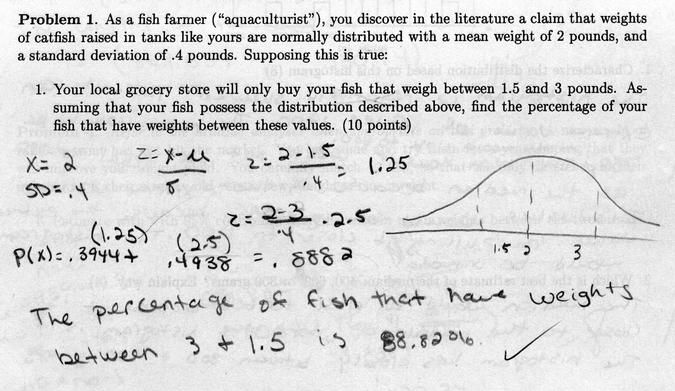 Problem 1. As a fish farmer (“aquaculturist”), you discover in the literature a claim that weights
of catfish raised in tanks like yours are normally distributed with a mean weight of 2 pounds, and
a standard deviation of .4 pounds. Supposing this is true:
1. Your local grocery store will only buy your fish that weigh between 1.5 and 3 pounds. As-
suming that your fish possess the distribution described above, find the percentage of your
fish that have weights between these values. (10 points)
X = 2
SD = .4
Z = X-μ / σ
z = 2-1.5 / .4 = 1.25
z = 2-3 / .4 = 2.5
1.5 2 3
(1.25) (2.5)
P(x) = .3944 + .4938 = .8882
The percentage of fish that have weights
between 3 + 1.5 is 88.82%. ✓